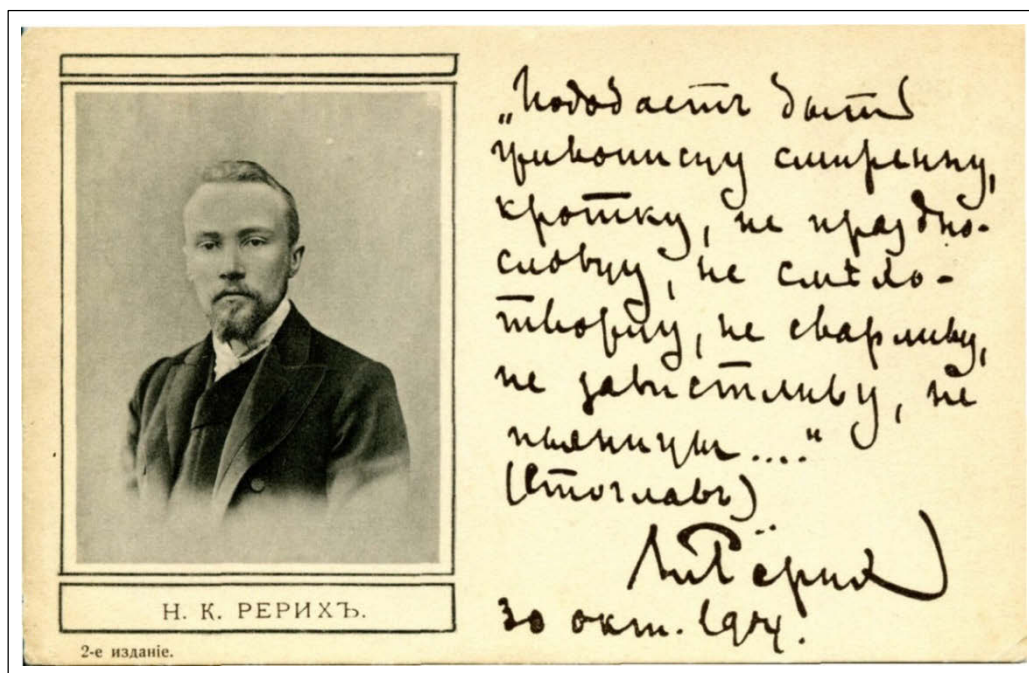 Н. К. РЕРИХЪ.
2-е изданіе.
„Подобаетъ быти
живописцу смиренну,
кротку, не праздно-
словцу, не смѣхо-
творцу, не сварливу,
не завистливу, не
пьяницы...."
(Стоглавъ)
Н. Рёрих
30 окт. 1904.